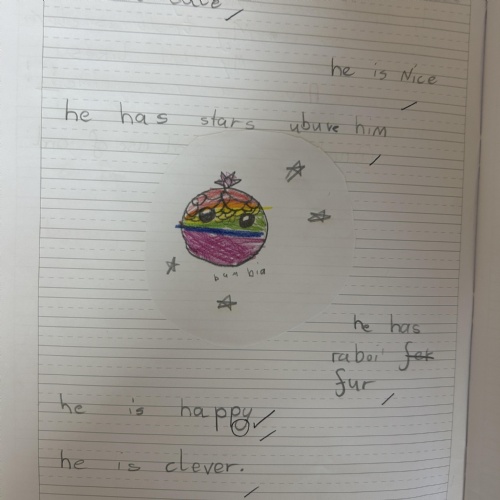 he is Nice
he has stars ubuve him
he has
raboi fek
fur
he is happy
he is clever.